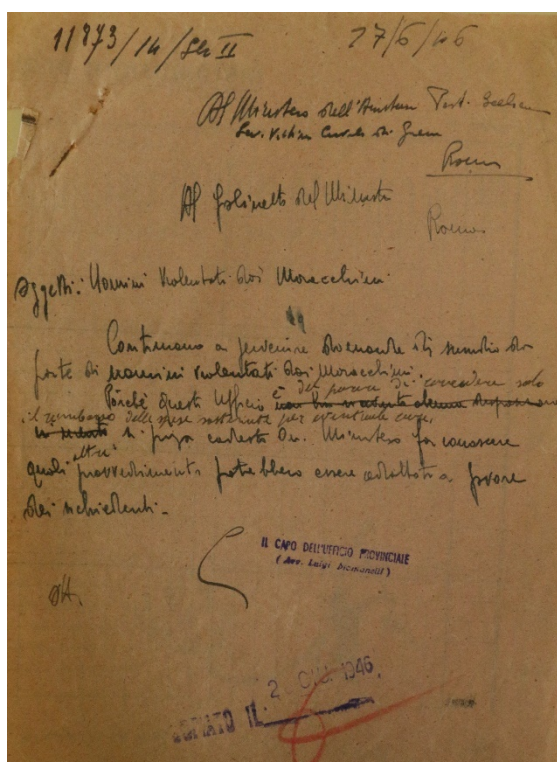 11873/14/Sez II 27/6/46
Al Ministero dell'Assistenza Post. Bellica
Serv. Vittime Civili di Guerra
Roma
Al Gabinetto del Ministro
Roma
Oggetto: Uomini violentati dai Marocchini
Continuano a pervenire domande di sussidio da
parte di uomini violentati dai Marocchini.
Poichè questo Ufficio è del parere di concedere solo
il rimborso delle spese sostenute per eventuali cure,
si prega codesto On. Ministero far conoscere
quali altri provvedimenti potrebbero essere adottati a favore
dei richiedenti.-
IL CAPO DELL'UFFICIO PROVINCIALE
(Avv. Luigi
COPIATO IL 2 GIU. 1946